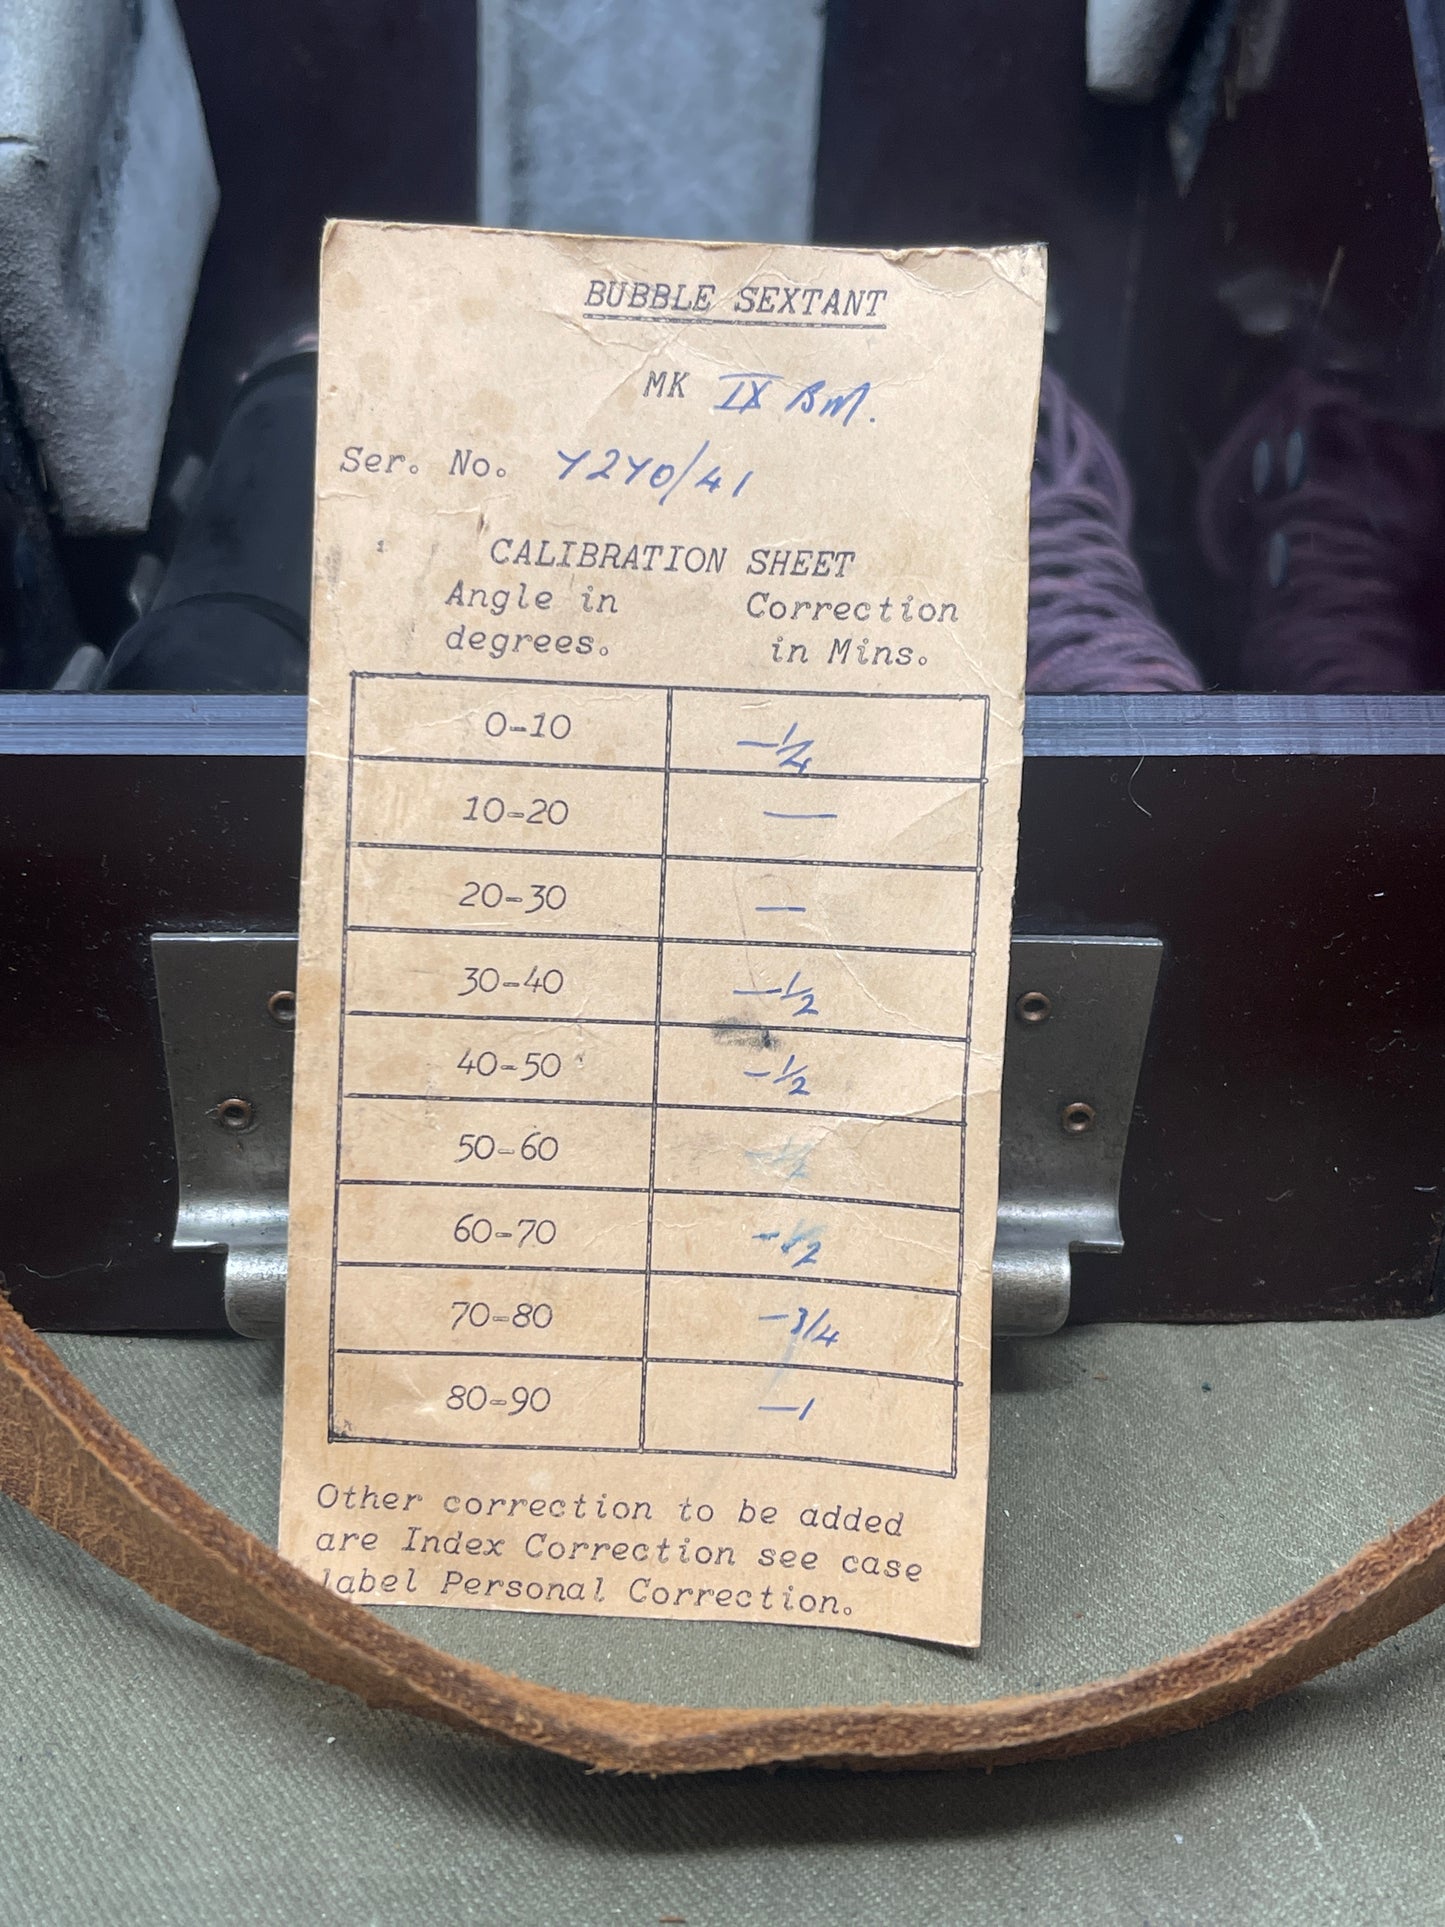 BUBBLE SEXTANT
MK IX BM.
Ser. No. Y2Y0/41
CALIBRATION SHEET
Angle in degrees. Correction in Mins.
0-10 -1/4
10-20 —
20-30 —
30-40 -1/2
40-50 -1/2
50-60
60-70 -1/2
70-80 -3/4
80-90 -1
Other correction to be added
are Index Correction see case
label Personal Correction.